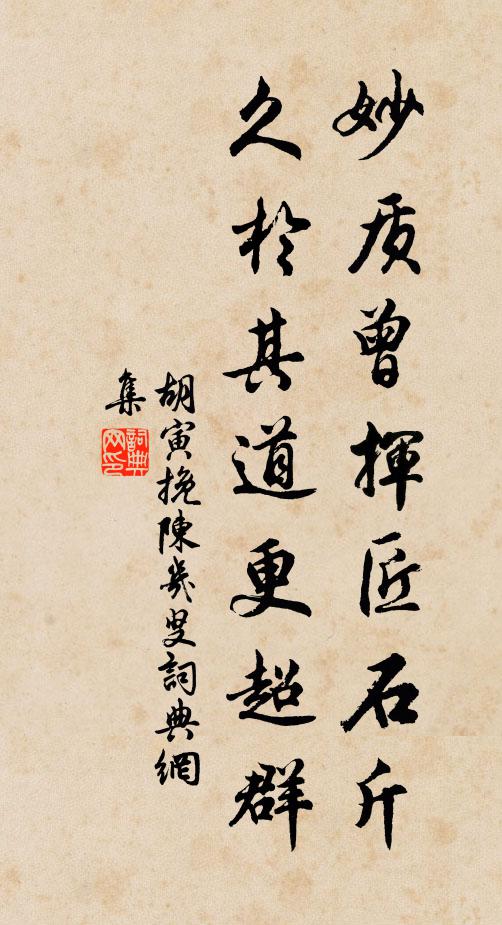 妙质曾揮匠石斤
久於其道更超群
胡寅挽陳幾叟詞典網
集
詞典網印